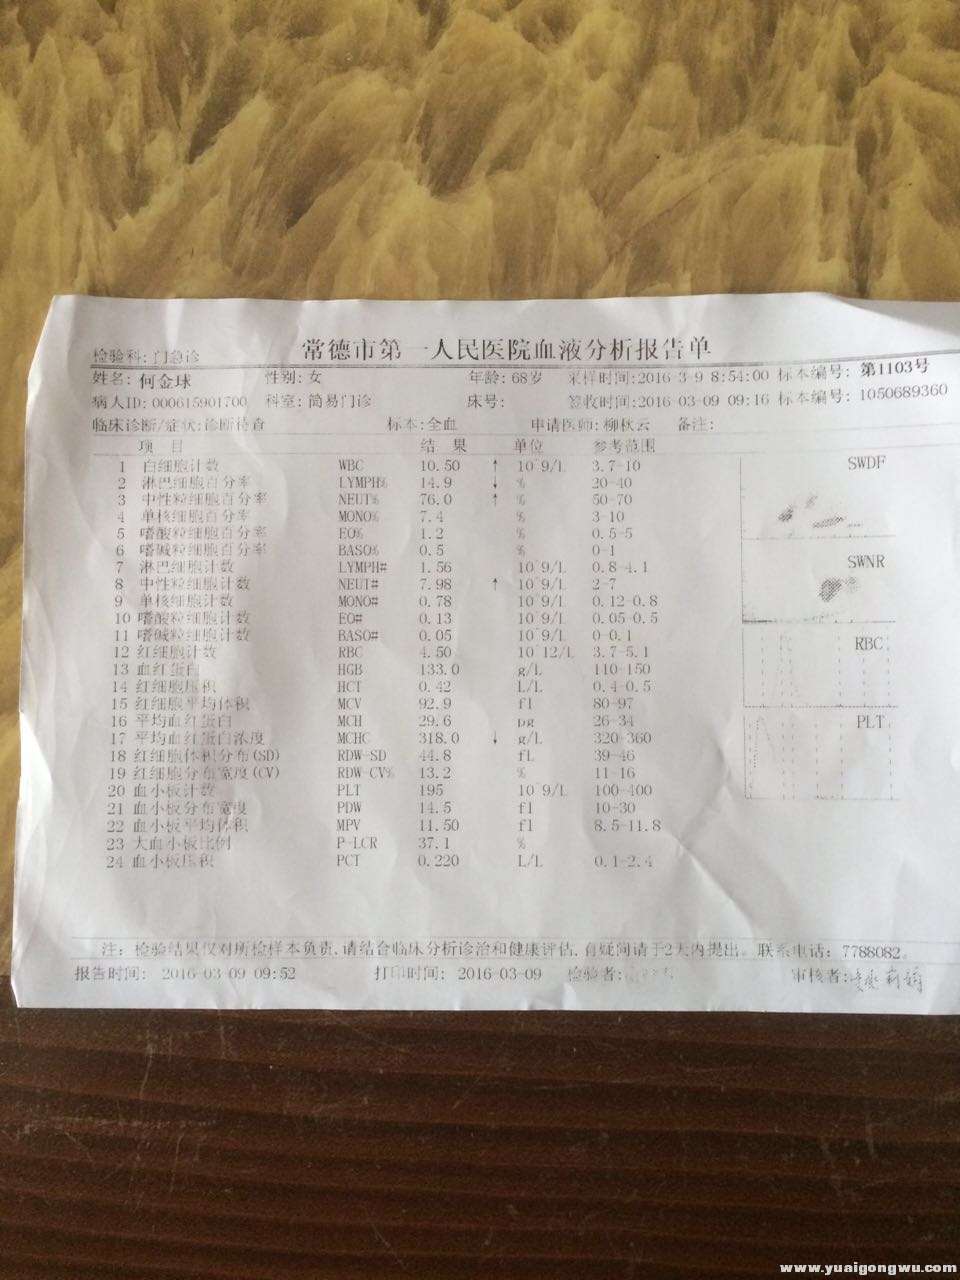 常德市第一人民医院血液分析报告单
检验科:门急诊
姓名: 何金球 性别: 女 年龄: 68岁 采样时间:2016-3-9 8:54:00 标本编号: 第1103号
病人ID: 000615901700 科室: 简易门诊 床号: 签收时间:2016-03-09 09:16 标本编号: 1050689360
临床诊断/症状:诊断待查 标本:全血 申请医师: 柳秋云 备注:
项 目 结 果 单位 参考范围
1 白细胞计数 WBC 10.50 ↑ 10^9/L 3.7-10
2 淋巴细胞百分率 LYMPH% 14.9 ↓ % 20-40
3 中性粒细胞百分率 NEUT% 76.0 ↑ % 50-70
4 单核细胞百分率 MONO% 7.4 % 3-10
5 嗜酸粒细胞百分率 EO% 1.2 % 0.5-5
6 嗜碱粒细胞百分率 BASO% 0.5 % 0-1
7 淋巴细胞计数 LYMPH# 1.56 10^9/L 0.8-4.1
8 中性粒细胞计数 NEUT# 7.98 ↑ 10^9/L 2-7
9 单核细胞计数 MONO# 0.78 10^9/L 0.12-0.8
10 嗜酸粒细胞计数 EO# 0.13 10^9/L 0.05-0.5
11 嗜碱粒细胞计数 BASO# 0.05 10^9/L 0-0.1
12 红细胞计数 RBC 4.50 10^12/L 3.7-5.1
13 血红蛋白 HGB 133.0 g/L 110-150
14 红细胞压积 HCT 0.42 L/L 0.4-0.5
15 红细胞平均体积 MCV 92.9 fl 80-97
16 平均血红蛋白 MCH 29.6 pg 26-34
17 平均血红蛋白浓度 MCHC 318.0 ↓ g/L 320-360
18 红细胞体积分布(SD) RDW-SD 44.8 fL 39-46
19 红细胞分布宽度(CV) RDW-CV% 13.2 % 11-16
20 血小板计数 PLT 195 10^9/L 100-400
21 血小板分布宽度 PDW 14.5 fl 10-30
22 血小板平均体积 MPV 11.50 fl 8.5-11.8
23 大血小板比例 P-LCR 37.1 %
24 血小板压积 PCT 0.220 L/L 0.1-2.4
SWDF
SWNR
RBC
PLT
注: 检验结果仅对所检样本负责,请结合临床分析诊治和健康评估,有疑问请于2天内提出。联系电话: 7788082。
报告时间: 2016-03-09 09:52 打印时间: 2016-03-09 检验者: 审核者:
www.yuaigongwu.com